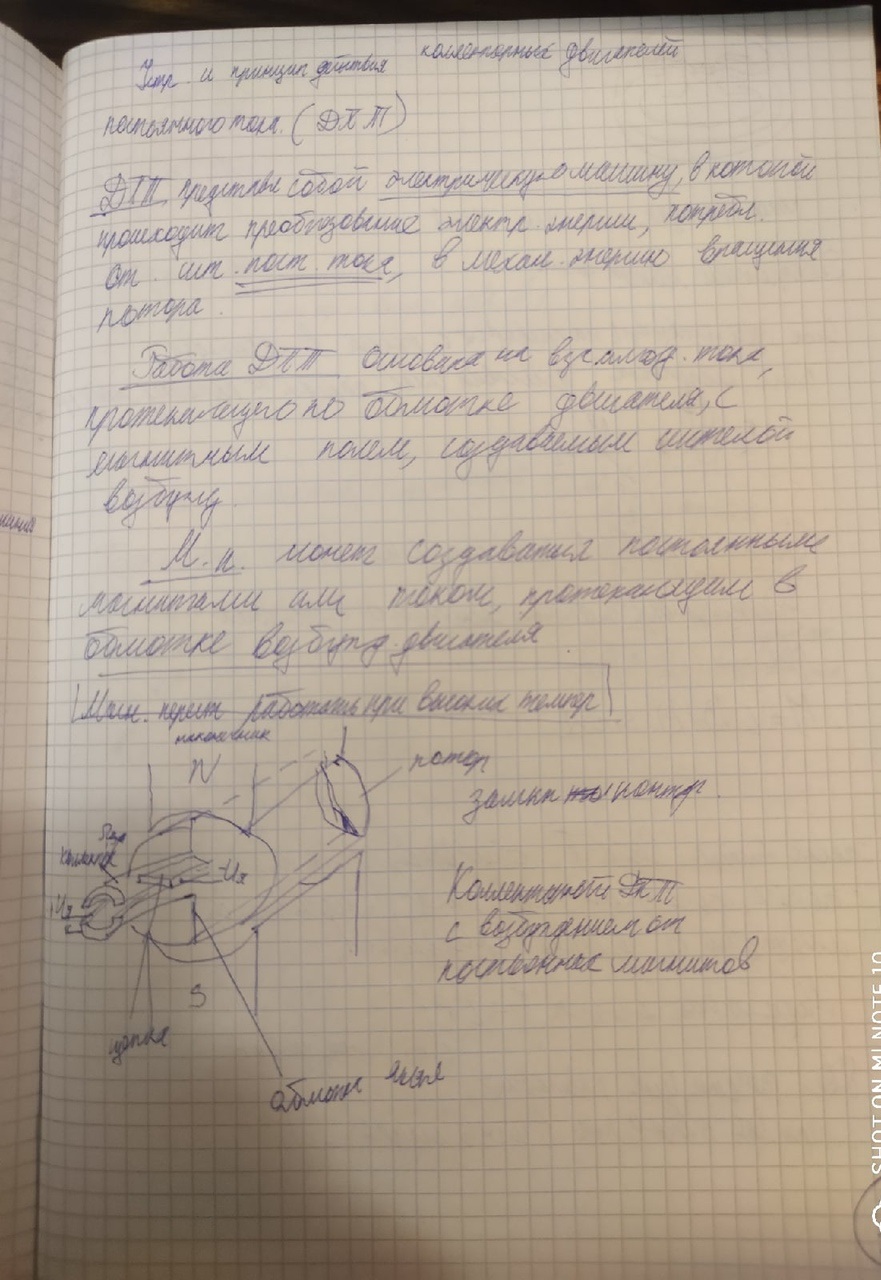 Устр. и принцип действия коллекторных двигателей
постоянного тока. (ДПТ)
ДПТ представ собой электрическую машину, в которой
происходит преобразование электр. энергии, потребл.
от ист. пост. тока, в механ. энергию вращения
ротора.
Работа ДПТ основана на взаимод. тока,
протекающего по обмотке двигателя, с
магнитным полем, создаваемым системой
возбужд.
М.п. может создаваться постоянными
магнитами или током, протекающим в
обмотке возбужд. двигателя
Магн. перест работать при высоких темпер
наконечник
N
ротор
замкн контур.
Uя
Uя
Коллекторный ДПТ
с возбуждением от
постоянных магнитов
S
щетка
обмотка якоря
SHOT ON MI NOTE 10